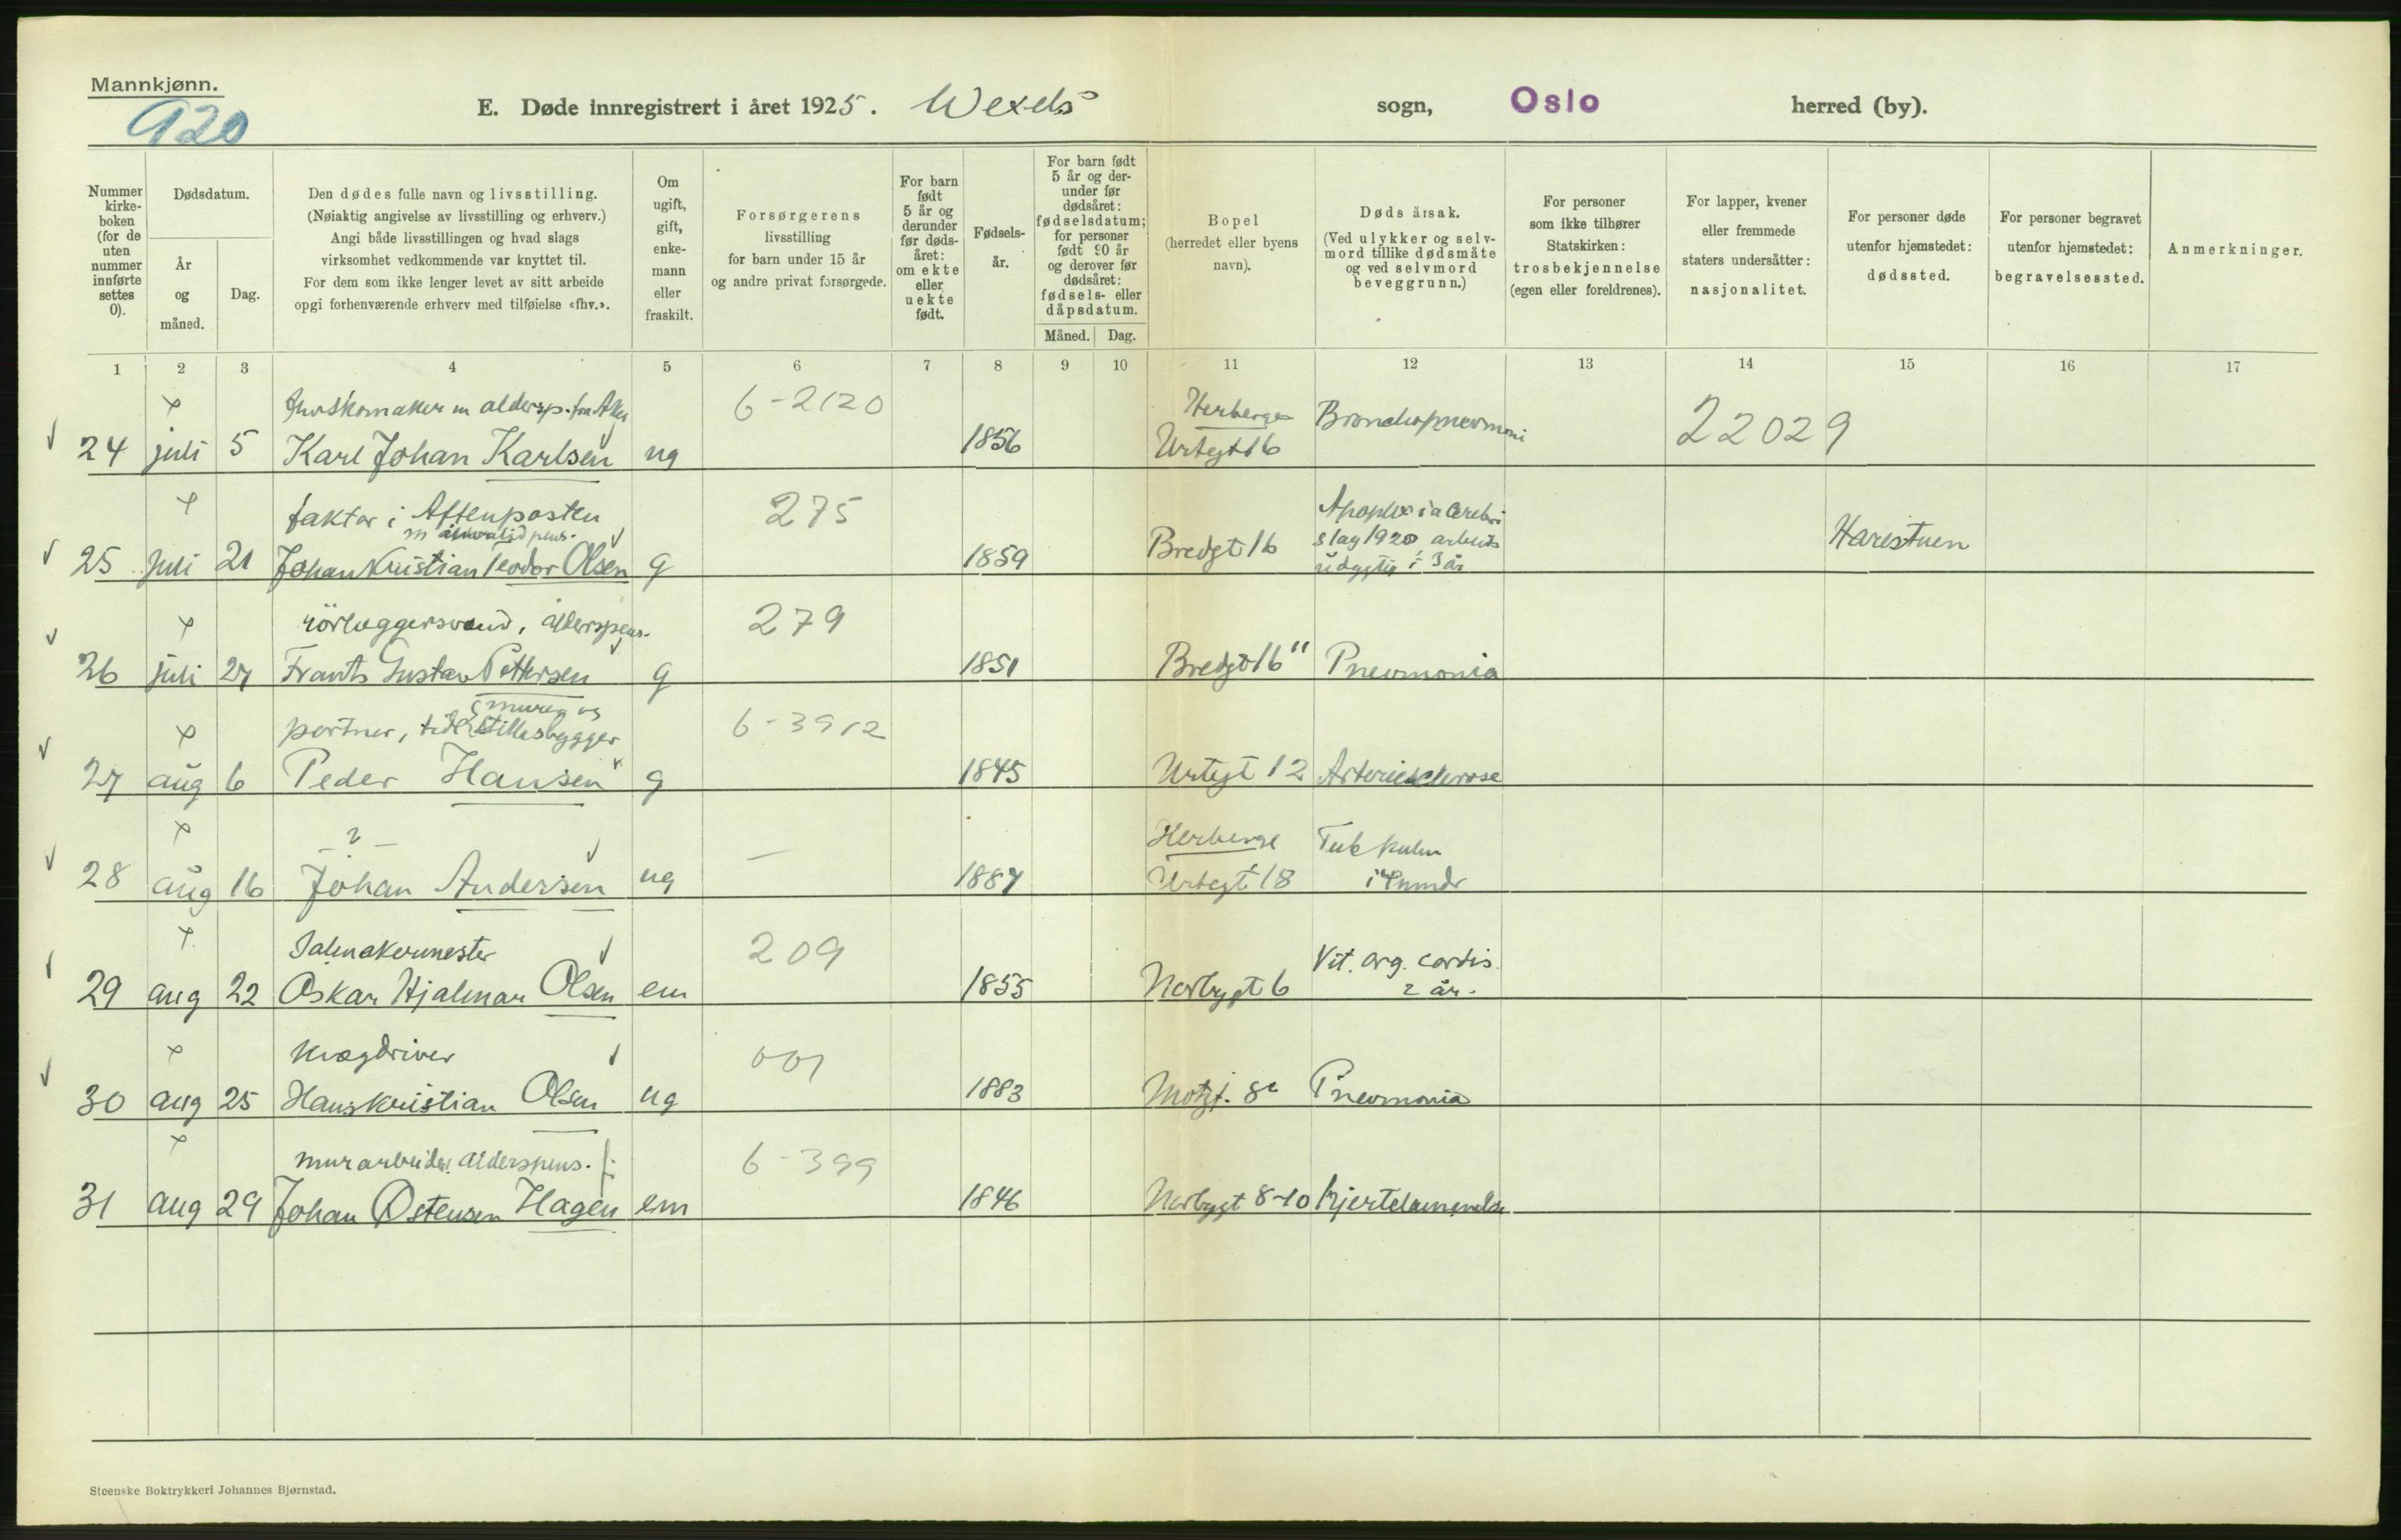 Mannkjønn.
920
E. Døde innregistrert i året 1925. Wexels sogn, Oslo herred (by).
Nummer kirke-boken (for de uten nummer innførte settes 0).
Dødsdatum.
År og måned.
Dag.
Den dødes fulle navn og livsstilling.
(Nøiaktig angivelse av livsstilling og erhverv.)
Angi både livsstillingen og hvad slags
virksomhet vedkommende var knyttet til.
For dem som ikke lenger levet av sitt arbeide
opgi forhenværende erhverv med tilføielse «fhv.».
Om ugift, gift, enke-mann eller fraskilt.
Forsørgerens
livsstilling
for barn under 15 år
og andre privat forsørgede.
For barn født 5 år og derunder før døds-året: om ekte eller uekte født.
Fødsels-år.
For barn født 5 år og der-under før dødsåret: fødselsdatum; for personer født 90 år og derover før dødsåret: fødsels- eller dåpsdatum.
Måned. Dag.
Bopel
(herredet eller byens
navn).
Døds årsak.
(Ved ulykker og selv-
mord tillike dødsmåte
og ved selvmord
beveggrunn.)
For personer
som ikke tilhører
Statskirken:
trosbekjennelse
(egen eller foreldrenes).
For lapper, kvener
eller fremmede
staters undersåtter:
nasjonalitet.
For personer døde
utenfor hjemstedet:
dødssted.
For personer begravet
utenfor hjemstedet:
begravelsessted.
Anmerkninger.
1 2 3 4 5 6 7 8 9 10 11 12 13 14 15 16 17
skomaker m aldersp. fra Aker 6-2120 Herberge Bronchopneumoni 22029
24 juli 5 Karl Johan Karlsen ug 1856 Urtegt 16
faktor i Aftenposten 275 Apoplexia Cerebri
m invalid pens. slag 1920 arbeids
25 juli 21 Johan Kristian Teodor Olsen g 1859 Bredgt 16 udygtig i 3 år Harestuen
rörleggersvend, alderspens. 279
26 juli 27 Frants Gustav Pettersen g 1851 Bredgt 16" Pneumonia
murer og
portner, tidl stillasbygger 6-3912
27 aug 6 Peder Hansen g 1845 Urtegt 12 Arteriesclerose
- ? - Herberge Tub pulm
28 aug 16 Johan Andersen ug — 1887 Urtegt 18
Salmakermester 209 Vit. org. cordis.
29 aug 22 Oskar Hjalmar Olsen em 1855 Norbygt 6 2 år.
Kvægdriver 001
30 aug 25 Hans Kristian Olsen ug 1883 Motzf. 8c Pneumonia
murarbeider. alderspens. 6-399
31 aug 29 Johan Østensen Hagen em 1846 Norbygt 8-10 Hjertelammelse
Steenske Boktrykkeri Johannes Bjørnstad.